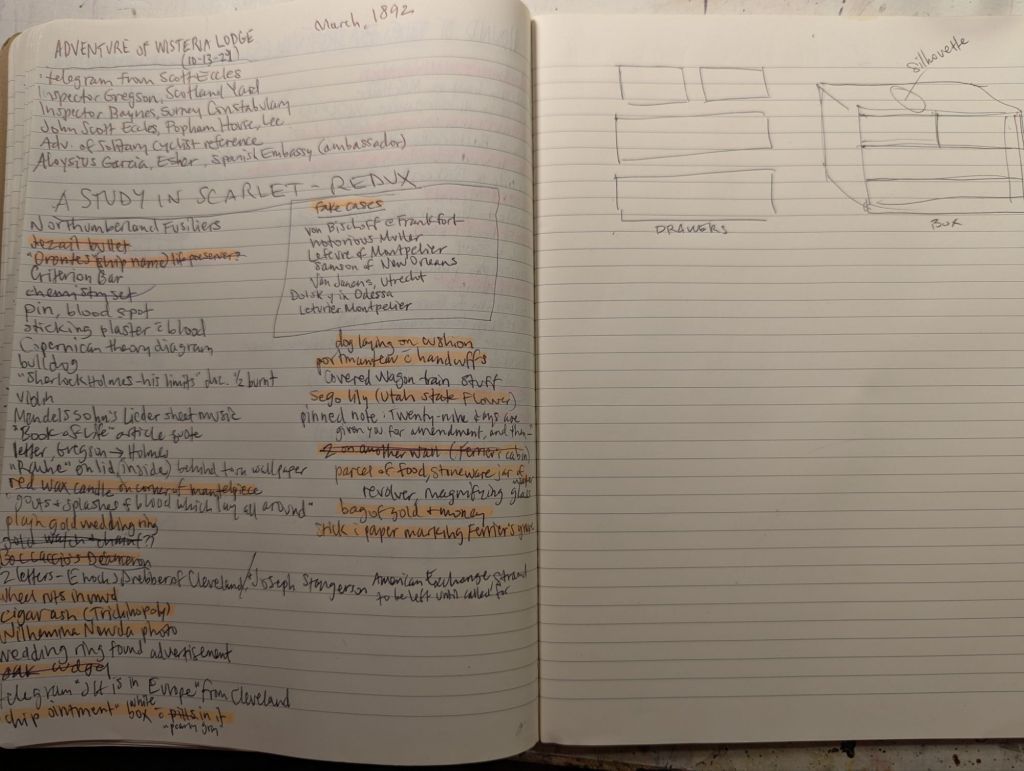 March, 1892
ADVENTURE of WISTERIA LODGE
(10-13-29)
telegram from Scott Eccles
Inspector Gregson, Scotland Yard
Inspector Baynes, Surrey Constabulary
John Scott Eccles, Popham House, Lee
Adv. of Solitary Cyclist reference
Aloysius Garcia, Esher, Spanish Embassy (ambassador)
A STUDY IN SCARLET - REDUX
Northumberland Fusiliers
Jezail bullet
"Orontes" (ship name) life preserver?
Criterion Bar
chemistry set
pin, blood spot
sticking plaster c̄ blood
Copernican theory diagram
bulldog
"Sherlock Holmes - his limits" doc. 1/2 burnt
violin
Mendelssohn's Lieder sheet music
"Book of Life" article quote
letter, Gregson → Holmes
"Rache" on lid, (inside) behind torn wallpaper
red wax candle on corner of mantelpiece
"gouts + splashes of blood which lay all around"
plain gold wedding ring
gold watch + chain??
Boccaccio's Decameron
2 letters - Enoch J Drebber of Cleveland / Joseph Stangerson American Exchange, Strand
to be left until called for
wheel ruts in mud
cigar ash (Trichinopoly)
Wilhemina Neruda photo
wedding ring found advertisement
oak cudgel
telegram "JH is in Europe" from Cleveland
chip ointment" white box c̄ pills in it
"pearly gray"
fake cases
Von Bischoff of Frankfort
notorious Muller
Lefevre of Montpelier
Samson of New Orleans
Van Jansens, Utrecht
Dolsky in Odessa
Leturier Montpelier
dog laying on cushion
portmanteau c̄ handcuffs
Covered Wagon train stuff
sego lily (Utah State Flower)
pinned note: Twenty-nine days are
given you for amendment, and then-"
2 on another wall (Ferrier's cabin)
parcel of food, stoneware jar of water
revolver, magnifying glass
bag of gold + money
stick c̄ paper marking Ferrier's grave
silhouette
DRAWERS
BOX